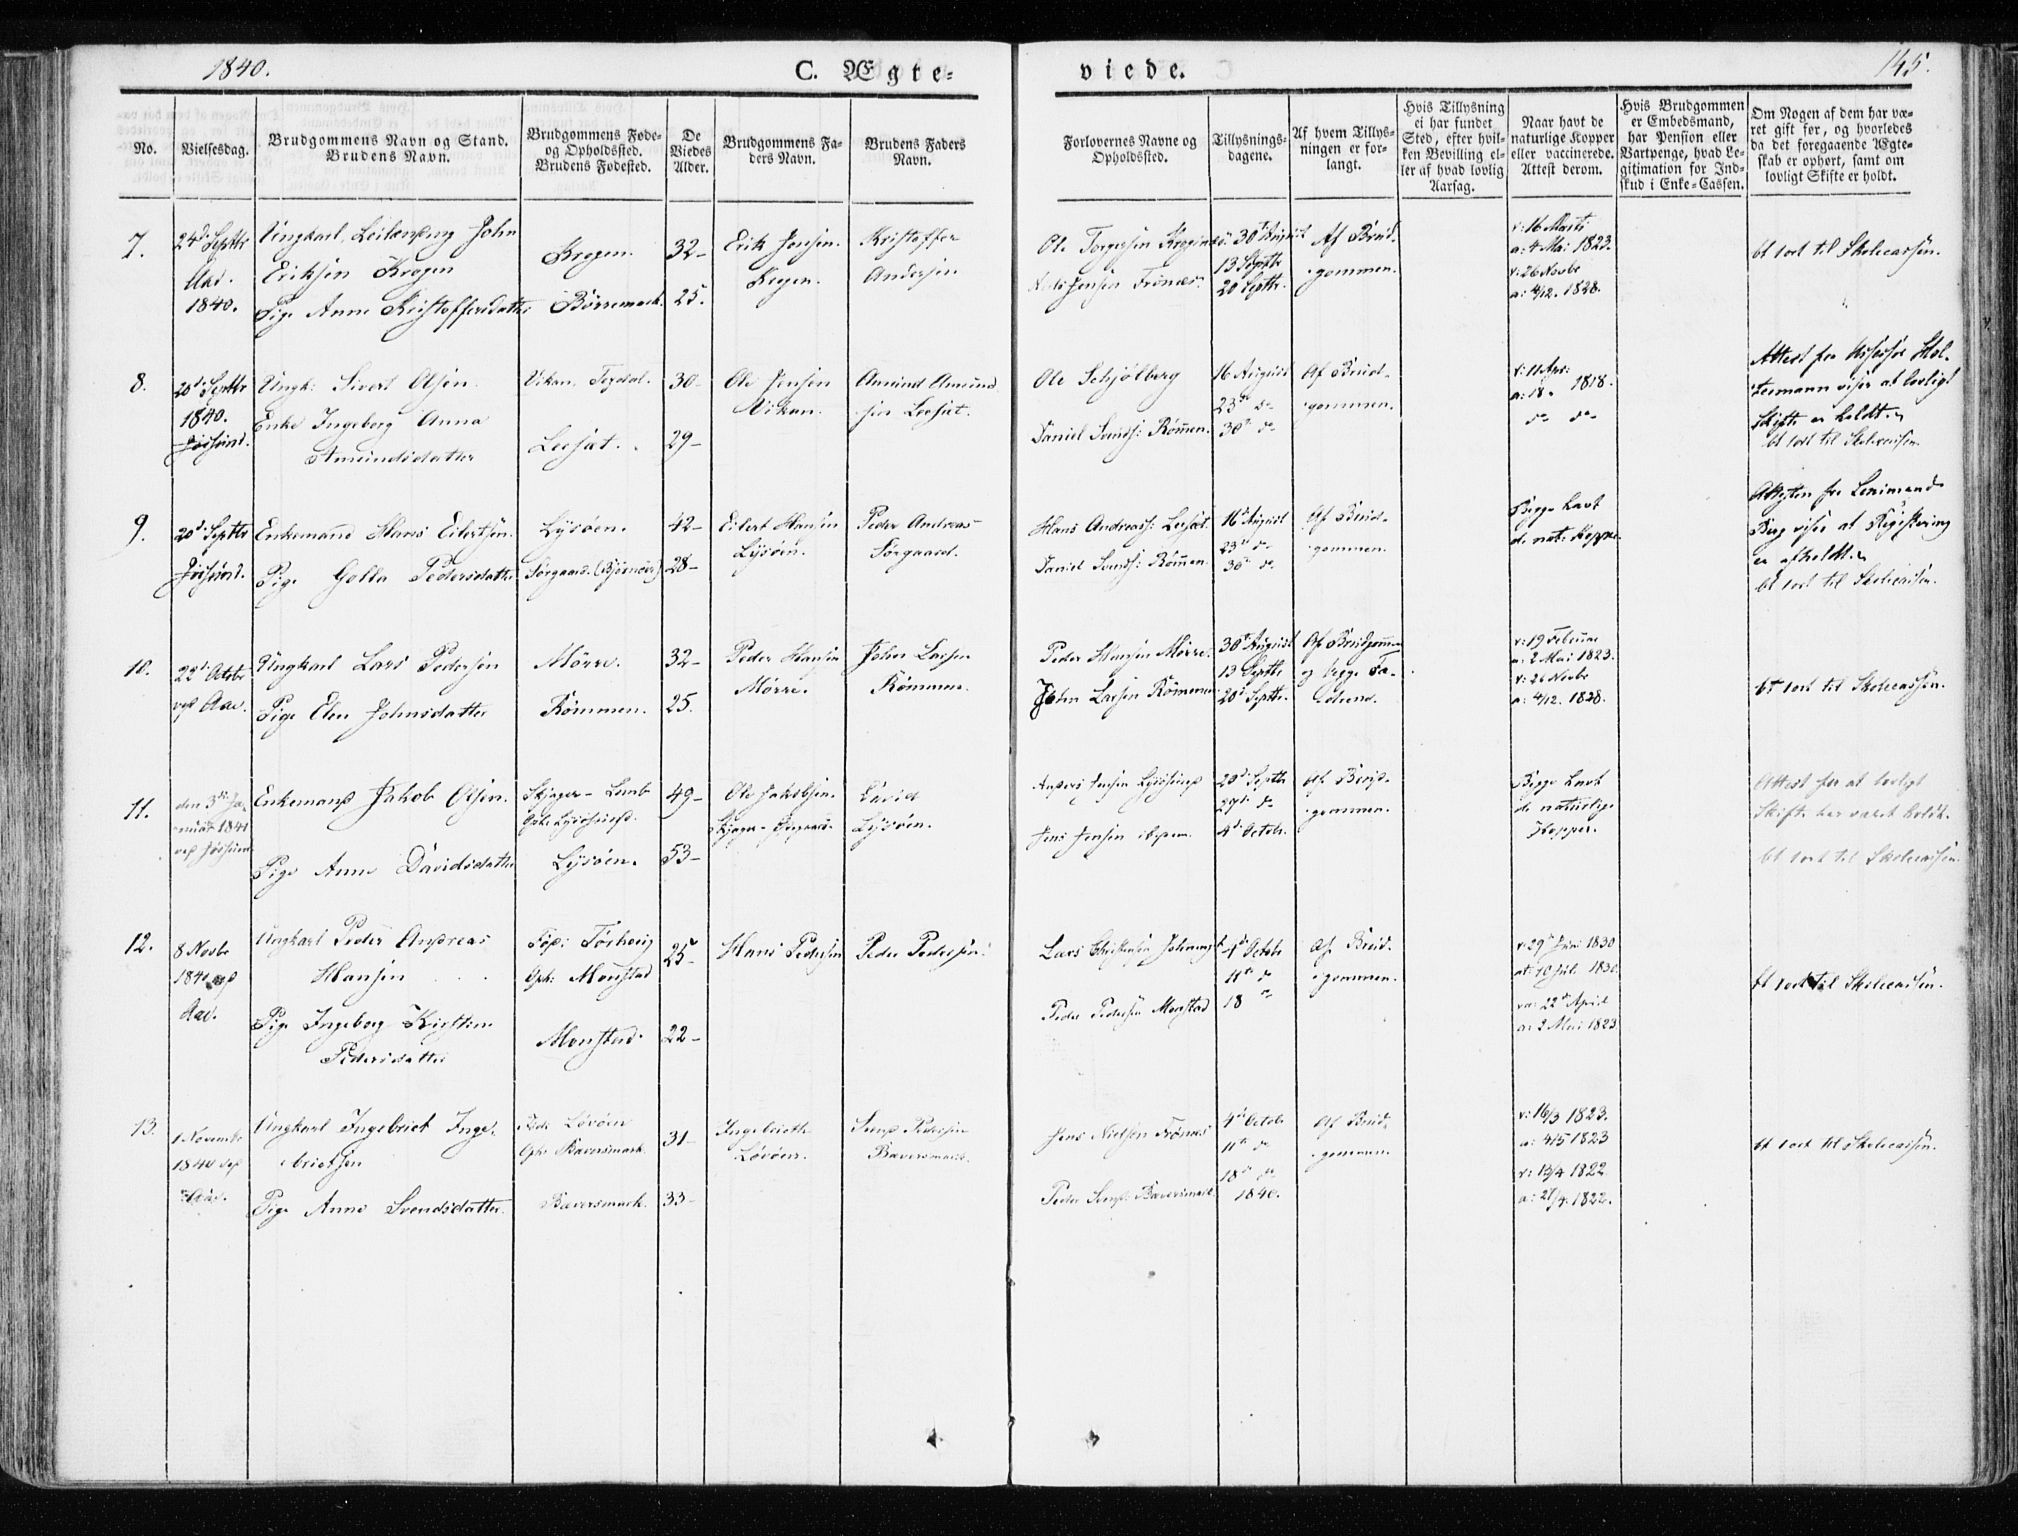 1840.
C. Ægte-
viede.
145.
No.
Vielsesdag.
Brudgommens Navn og Stand.
Brudens Navn.
Brudgommens Føde-
og Opholdssted.
Brudens Fødested.
De
Viedes
Alder.
Brudgommens Fa-
ders Navn.
Brudens Faders
Navn.
Forlovernes Navne og
Opholdssted.
Tillysnings-
dagene.
Af hvem Tillys-
ningen er for-
langt.
Hvis Tillysning
ei har fundet
Sted, efter hvil-
ken Bevilling el-
ler af hvad lovlig
Aarsag.
Naar havt de
naturlige Kopper
eller vaccinerede.
Attest derom.
Hvis Brudgommen
er Embedsmand,
har Pension eller
Vartpenge, hvad Le-
gitimation for Ind-
skud i Enke-Cassen.
Om Nogen af dem har væ-
ret gift før, og hvorledes
da det foregaaende Ægte-
skab er ophørt, samt om
lovligt Skifte er holdt.
7.
24d Septbr
Aae.
1840.
Ungkarl, Leilending John
Eriksen Krogen
Pige Anne Kristoffersdatter
Krogen.
Børremark.
32-
25.
Erik Jensen
Krogen.
Kristoffer
Andersen
Ole Torgersen
Jensen Frønæs.
30te August
13 Septbr
20 Septbr.
Af Brud-
gommen.
v: 16 Marts
a: 4 Mai 1823.
v: 26 Novbr
a: 4/12. 1828.
bt 1ort til Skolecassen.
8.
20de Septbr
1840.
Jøssund.
Ungk: Sivert Olsen
Enke Ingeborg Anna
Amundsdatter
Vikan
Leesæt.
30-
29-
Ole Jensen
Vikan.
Amund Amund
sen Leesæt.
Ole Schjølberg
Daniel Svends: Rømmen.
16 August
23de do
30te do
Af Brud-
gommen.
v: 11 Apr:
a: 18. 1818.
do do
Attest fra Assessor Hol-
termann viser at lovligt
Skifte er holdt.
bt 1ort til Skolecassen
9.
20de Septbr
Jøssund.
Enkemand Hans Eilertsen
Pige Golla Pedersdatter
Lysøen.
Sørgaard. (Bjørnør)
42-
28-
Eilert Hansen
Lysøen.
Peder Andreas-
Sørgaard.
Hans Andreass: Leesæt.
Daniel Svends: Rømmen.
16de August
23de do
30te do
Af Brud-
gommen.
Begge havt
de nat: Kopper.
Attesten fra Lensmand
Berg viser at Registering
er afholdt.
bt 1ort til Skolecassen.
10.
22de Octobr
ved Aae.
Ungkarl Lars Pedersen
Pige Elen Johnsdatter
Mørre.
Rømmen.
32-
25.
Peder Hansen
Mørre.
John Larsen
Rømmen.
Peder Hansen Mørre.
John Larsen Rømmen
30te August
13 Septbr
20de Septbr.
Af Brudgommen
og begge Fa-
v: 19 Februar
a: 2 Mai 1823.
v: 26 Novbr
a: 4/12. 1828.
bt 1ort til Skolecassen.
11.
den 3die Ja-
nuar 1841
ved Jøssund
Enkemand Jakob Olsen.
Pige Anne Davidsdatter
Lysøen.
49-
53-
Ole Jakobsen
David
Lysøen.
Jens Jensen ibidem.
20de Septbr
27de do
4de Octob.
Af Brud-
gommen.
Begge havt
de naturlige
Kopper.
Attest for at lovligt
Skifte har været holdt.
bt 1ort til Skolecassen.
12.
8 Novbr
1840 ved
Aae.
Ungkarl Peder Andreas
Hansen
Pige Ingeborg Kirstine
Pedersdatter
Oph: Monstad
Monstad
25-
22-
Hans Pedersen
Peder Pedersen
Lars Christensen
Peder Pedersen Monstad
4de Octobr
11te do
18 do
Af Brud-
gommen.
v: 29de Juni 1830
at: 10 Jul. 1830.
va: 22de April
a: 2 Mai 1823
bt 1ort til Skolecassen.
13.
1 Novembr
1840 ved
Aae.
Ungkarl Ingebriet Inge-
brietsen
Pige Anne Svendsdatter
Løvøen
Oph: Bæversmark.
Bæversmark.
31-
33-
Ingebrieth
Løvøen.
Svend Pedersen
Bæversmark.
Jens Nielsen Frønæs
Peder Svends: Bæversmark
4de Octob.
11te do
18de do
1840.
Af Brud-
gommen.
v: 16/3 1823.
a: 4/5 1823
v: 13/4 1822
a: 21/4. 1822.
bt 1ort til Skolecassen.